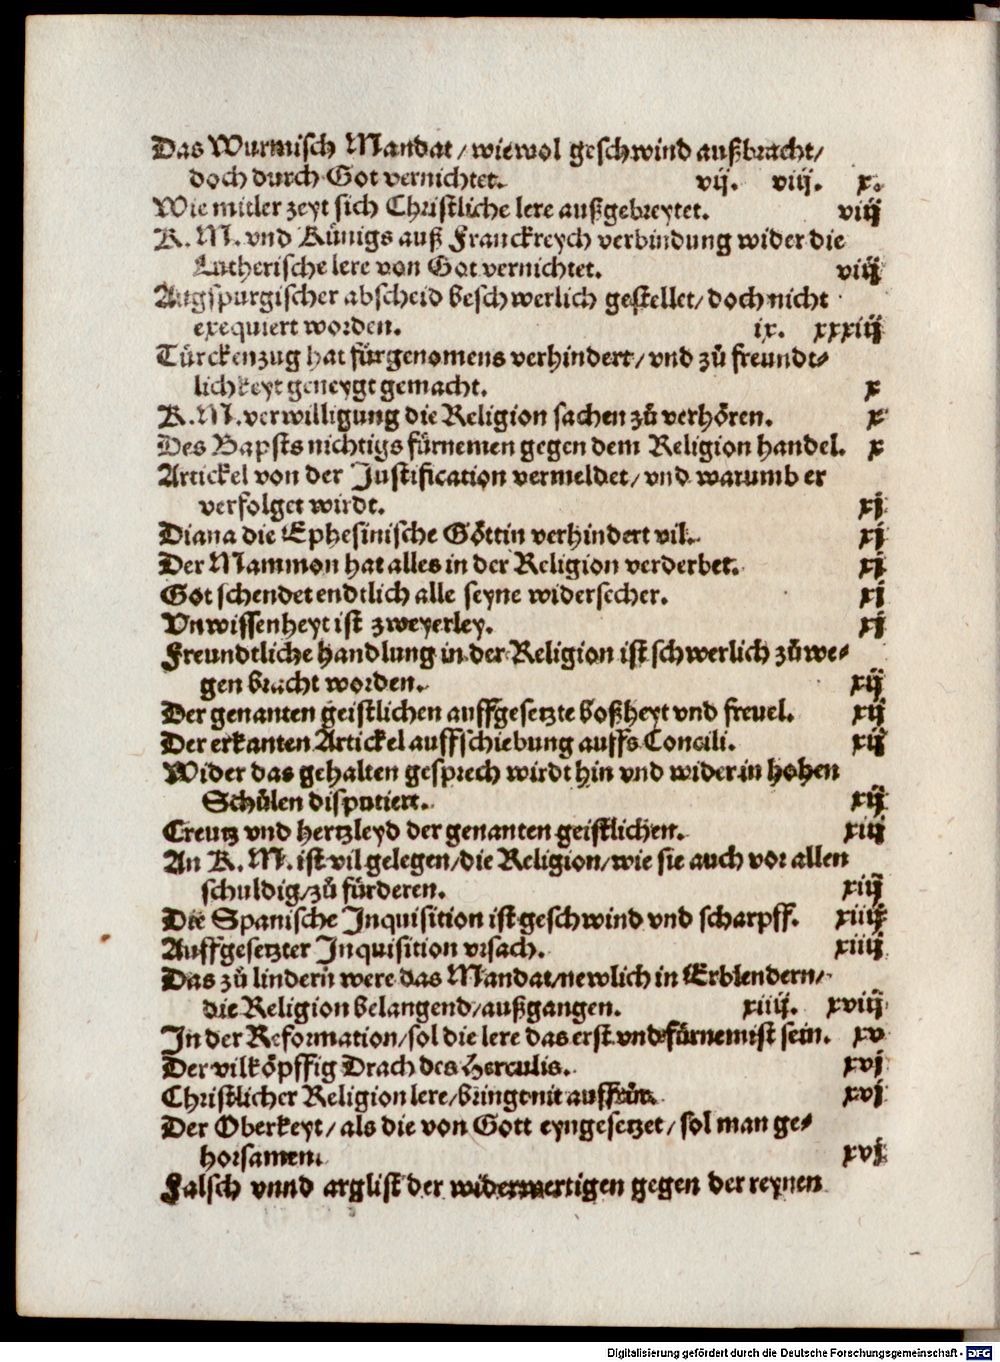 Das Wurmisch Mandat / wiewol geschwind außbracht/
doch durch Got vernichtet. vij. viij. x.
Wie mitler zeyt sich Christliche lere außgebreytet. viij
K. M. vnd Künigs auß Franckreych verbindung wider die
Lutherische lere von Got vernichtet. viij
Augspurgischer abscheid beschwerlich gestellet/ doch nicht
exequiert worden. ix. xxxiij
Türckenzug hat fürgenomens verhindert/ vnd zů freundt⸗
lichkeyt geneygt gemacht. x
K. M. verwilligung die Religion sachen zů verhören. x
Des Bapsts nichtigs fürnemen gegen dem Religion handel. x
Artickel von der Justification vermeldet/ vnd warumb er
verfolget wirdt. xj
Diana die Ephesinische Göttin verhindert vil. xj
Der Mammon hat alles in der Religion verderbet. xj
Got schendet endtlich alle seyne widersecher. xj
Vnwissenheyt ist zweyerley. xj
Freundtliche handlung in der Religion ist schwerlich zů we⸗
gen bracht worden. xij
Der genanten geistlichen auffgesetzte boßheyt vnd freuel. xij
Der erkanten Artickel auffschiebung auffs Concili. xij
Wider das gehalten gesprech wirdt hin vnd wider in hohen
Schůlen disputiert. xij
Creutz vnd hertzleyd der genanten geistlichen. xiij
An K. M. ist vil gelegen/die Religion/wie sie auch vor allen
schuldig/zů fürderen. xiij
Die Spanische Inquisition ist geschwind vnd scharpff. xiiij
Auffgesetzter Inquisition vrsach. xiiij
Das zů lindern were das Mandat/newlich in Erblendern/
die Religion belangend/außgangen. xiiij. xviij
In der Reformation/sol die lere das erst vnd fürnemist sein. xv
Der vilköpffig Drach des Herculis. xvj
Christlicher Religion lere/bringt nit auffrůr. xvj
Der Oberkeyt/ als die von Gott eyngesetzet/ sol man ge⸗
horsamen. xvj
Falsch vnnd arglist der widerwertigen gegen der reynen
Digitalisierung gefördert durch die Deutsche Forschungsgemeinschaft - DFG